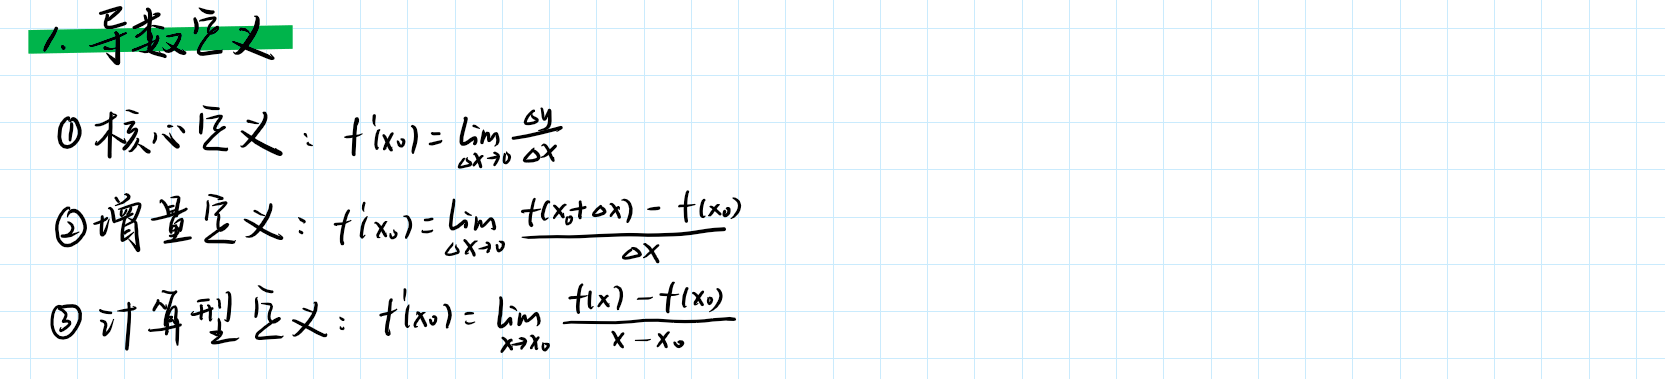 1. 导数定义
① 核心定义: f'(x₀) = lim_{Δx→0} Δy/Δx
② 增量定义: f'(x₀) = lim_{Δx→0} (f(x₀+Δx) - f(x₀))/Δx
③ 计算型定义: f'(x₀) = lim_{x→x₀} (f(x) - f(x₀))/(x - x₀)